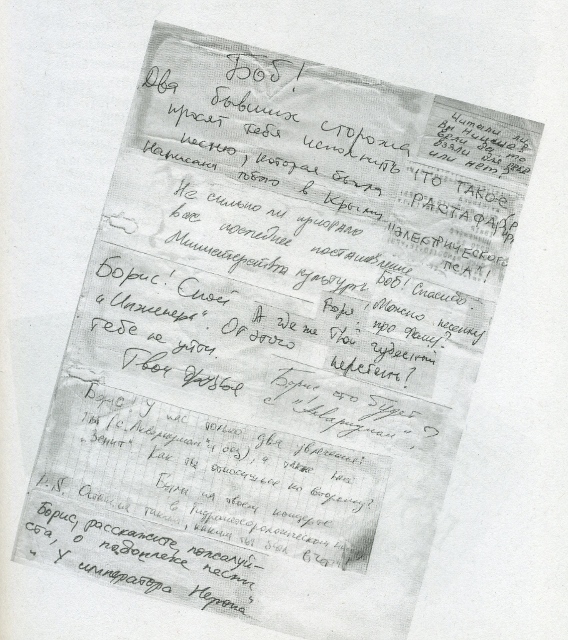 Боб!
Два бывших сторожа
просят тебя исполнить
песню, которая была
написана тобою в Крыму
Читали ли
Вы Ницше?
если да, то
взяли для себя
или нет?
ЧТО ТАКОЕ
"ЭЛЕКТРИЧЕСКОГО
ПСА"!
Не сильно ли
ваc последнее постановление
Министерства культуры
Боб! Спасибо.
Боря, можно песенку
про Фому?
Борис! Спой
"Инженера". От этого
тебе не уйти.
Твои друзья
А где же твой чудесный
перстень?
Борис что будет
с "Аквариумом"?
Борис! У нас только два увлечения:
ты (с "Аквариумом" и без), а также
"Зенит". Как ты относишься ко второму?
Были на твоем концерте
в Гидрометеорологическом
P.S. таким, каким ты был
Борис, расскажите, пожалуй-
ста, о подоплеке песни
"У императора Нерона"